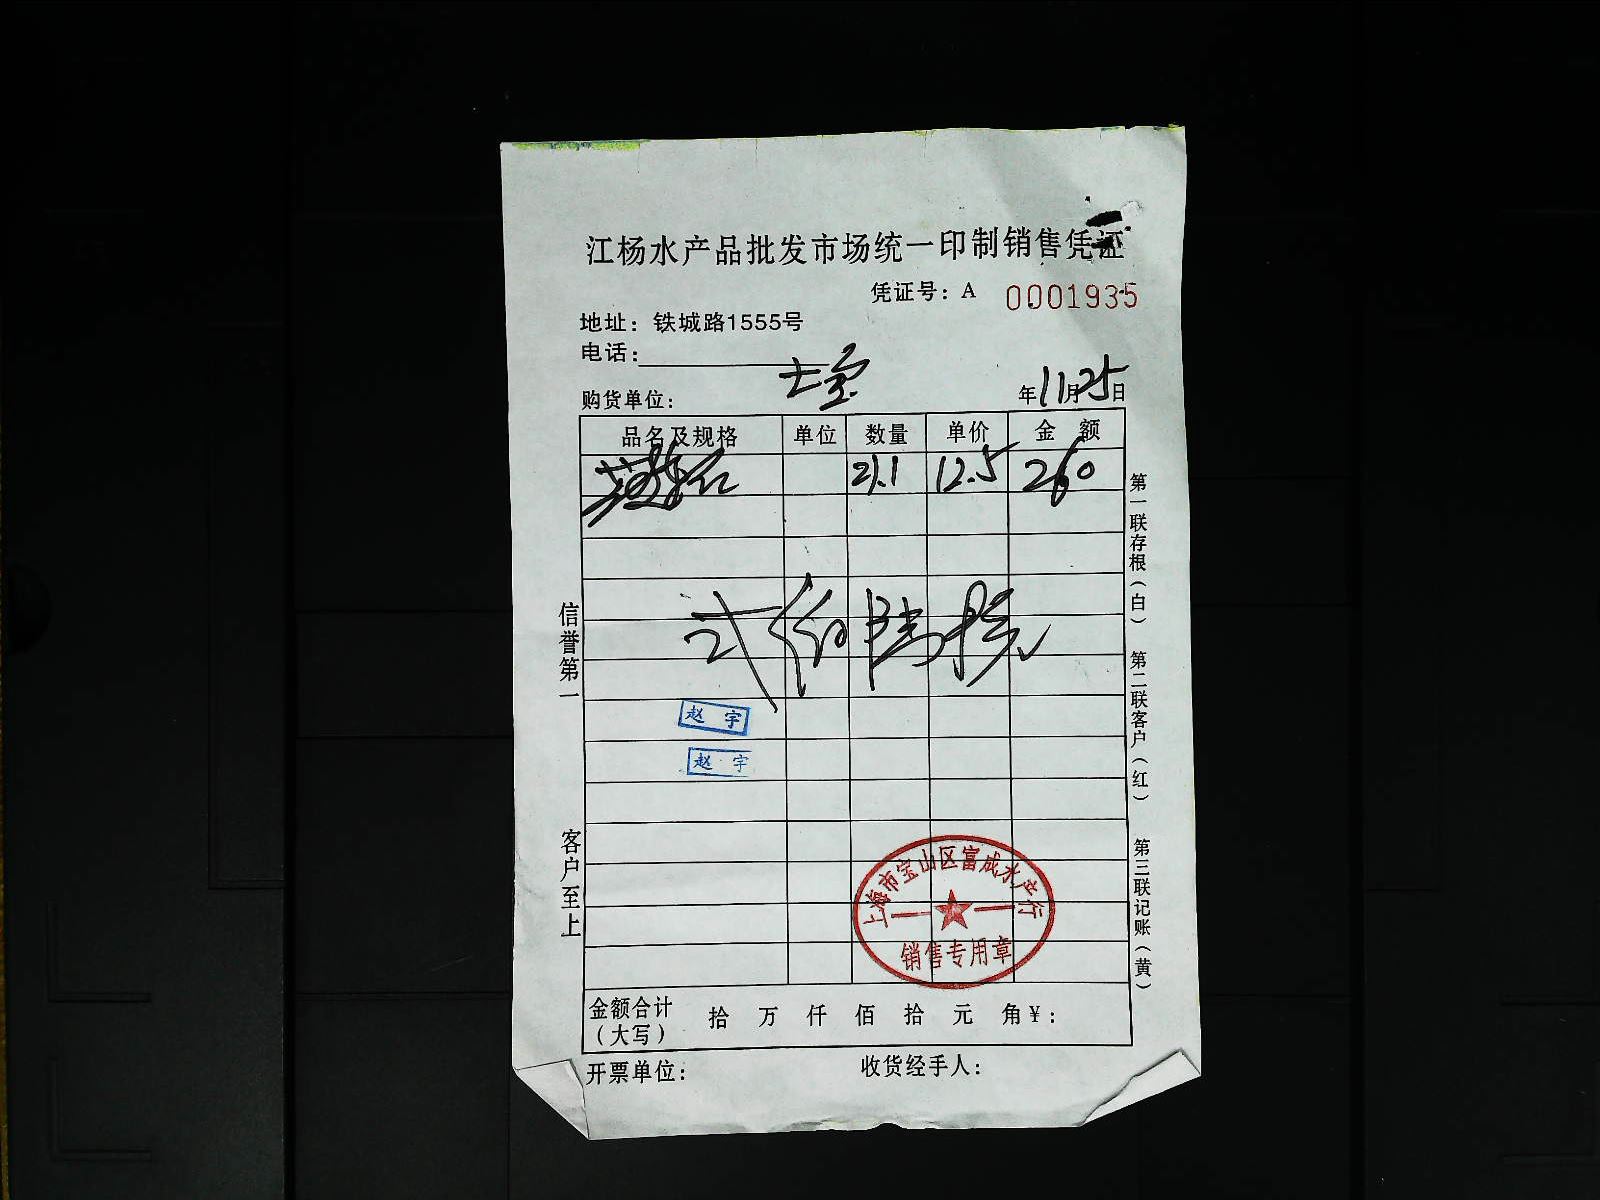 江杨水产品批发市场统一印制销售凭证
凭证号：A 0001935
地址：铁城路1555号
电话：
购货单位： 年11月25日
品名及规格 单位 数量 单价 金额
21.1 12.5 260
式佰陆拾
赵宇
赵宇
上海市宝山区富成水产行
销售专用章
金额合计（大写） 拾 万 仟 佰 拾 元 角 ¥：
开票单位： 收货经手人：
信誉第一
客户至上
第一联存根（白）
第二联客户（红）
第三联记账（黄）